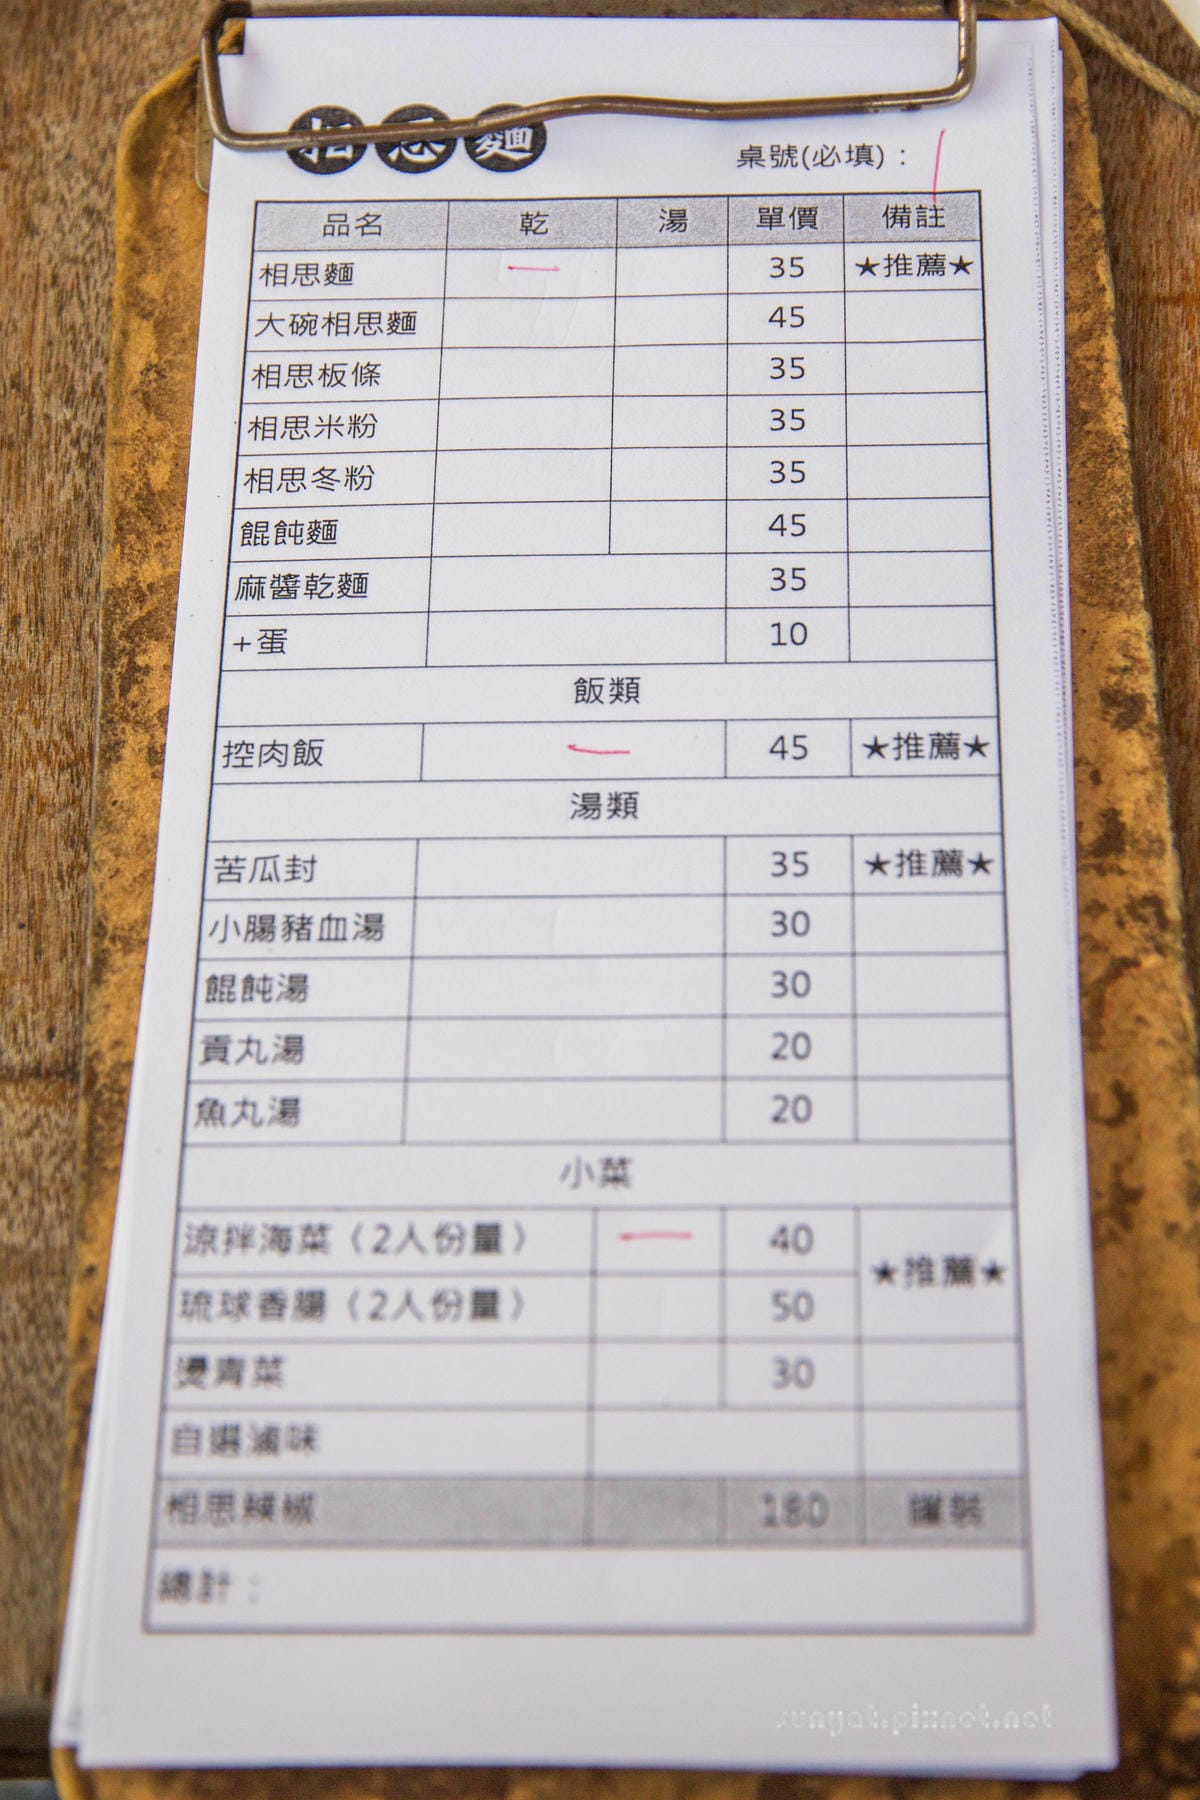 相思麵
桌號(必填)： 1
品名 乾 湯 單價 備註
相思麵 一 35 ★推薦★
大碗相思麵 45
相思板條 35
相思米粉 35
相思冬粉 35
餛飩麵 45
麻醬乾麵 35
+蛋 10
飯類
控肉飯 一 45 ★推薦★
湯類
苦瓜封 35 ★推薦★
小腸豬血湯 30
餛飩湯 30
貢丸湯 20
魚丸湯 20
小菜
涼拌海菜（2人份量） 一 40
★推薦★
琉球香腸（2人份量） 50
燙青菜 30
自選滷味
相思辣椒 180 罐裝
總計：
sunyat.pixnet.net